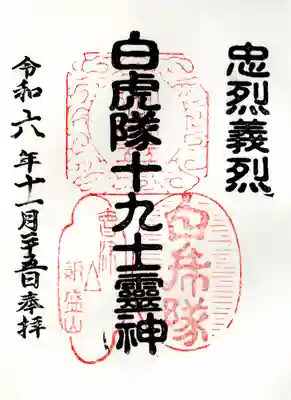 忠烈義烈
白虎隊十九士靈神
令和六年十一月二十五日奉拝
白虎隊
飯盛山